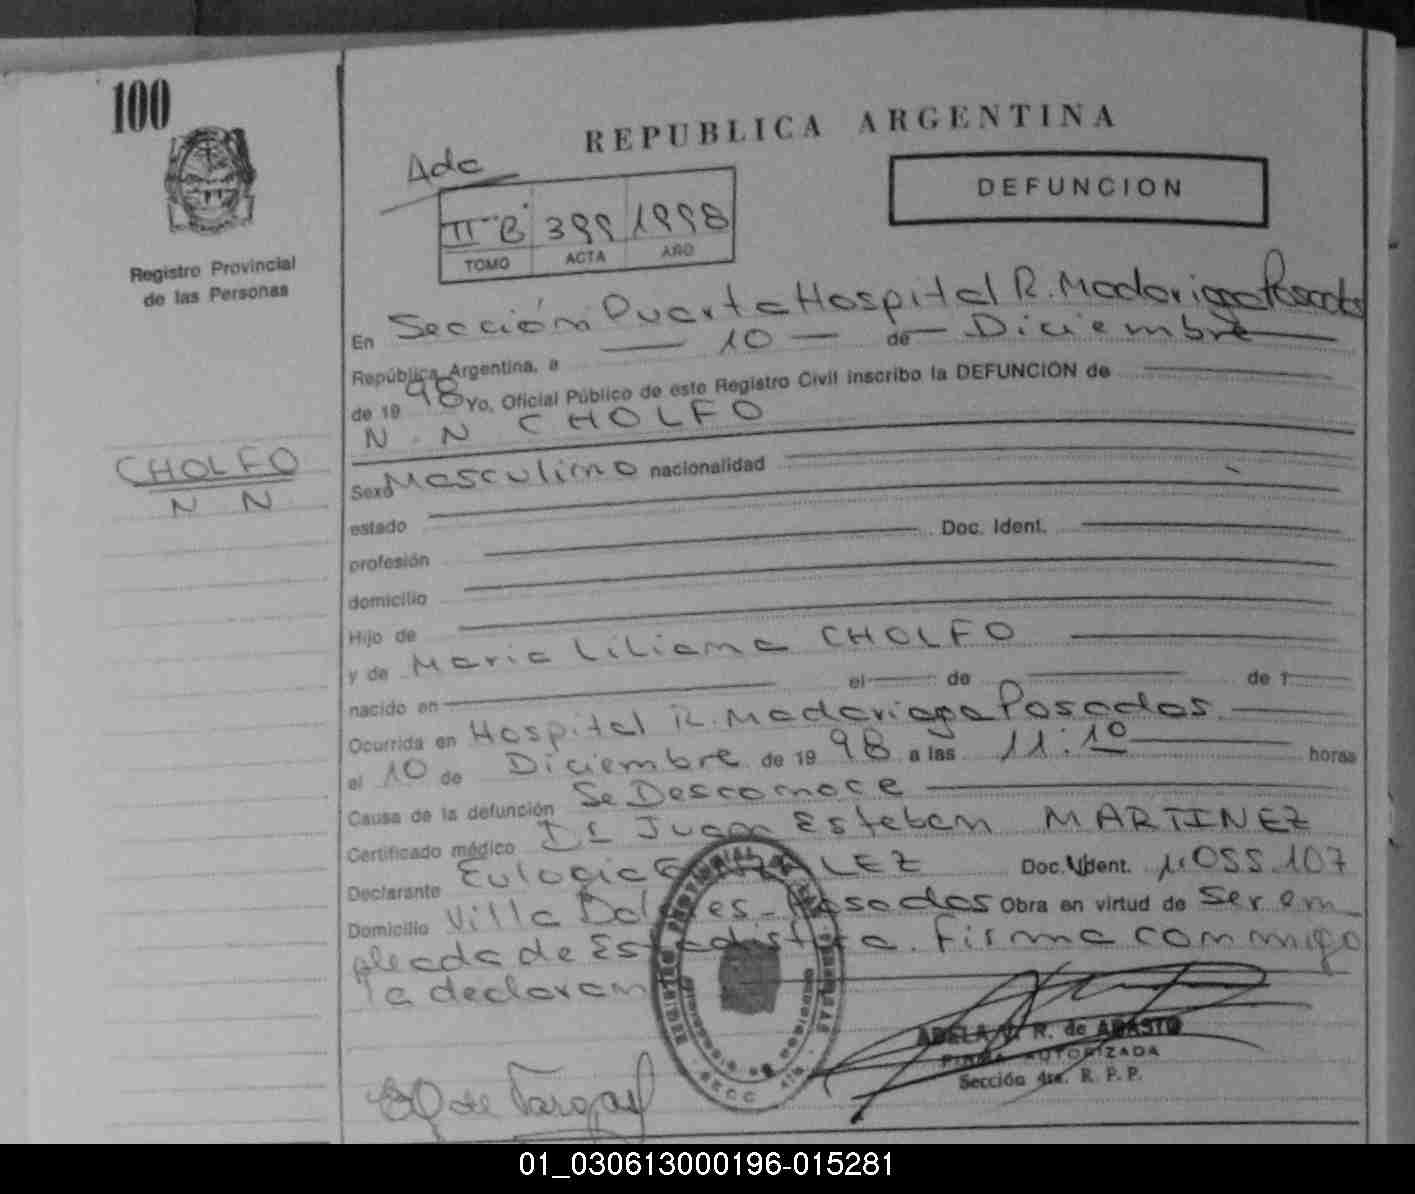 100
REPUBLICA ARGENTINA
Ada
DEFUNCION
II "B" 399 1998
TOMO ACTA AÑO
Registro Provincial
de las Personas
En Sección Puarta Hospital R. Madariaga Posadas
República Argentina, a 10 de Diciembre
de 1998 Yo, Oficial Público de este Registro Civil inscribo la DEFUNCION de
N. N CHOLFO
CHOLFO
N N
Sexo Masculino nacionalidad
estado
profesión Doc. Ident.
domicilio
Hijo de
y de Maria Liliana CHOLFO
nacido en el de de 1
Ocurrida en Hospital R. Madariaga Posadas
el 10 de Diciembre de 1998 a las 11:10 horas
Causa de la defunción Se Desconoce
Certificado médico Dr Juan Esteban MARTINEZ
Declarante Eulogia LEZ Doc. Ident. 11.055.107
Domicilio Villa Posadas Obra en virtud de Ser em
pleada de Estadistica. Firma conmigo
la declaran
REGISTRO PROVINCIAL PERSONAS
SECC 4ta.
ADELA R. de AGASTO
FIRMA AUTORIZADA
Sección 4ta. R. P. P.
de Vargas
01_030613000196-015281